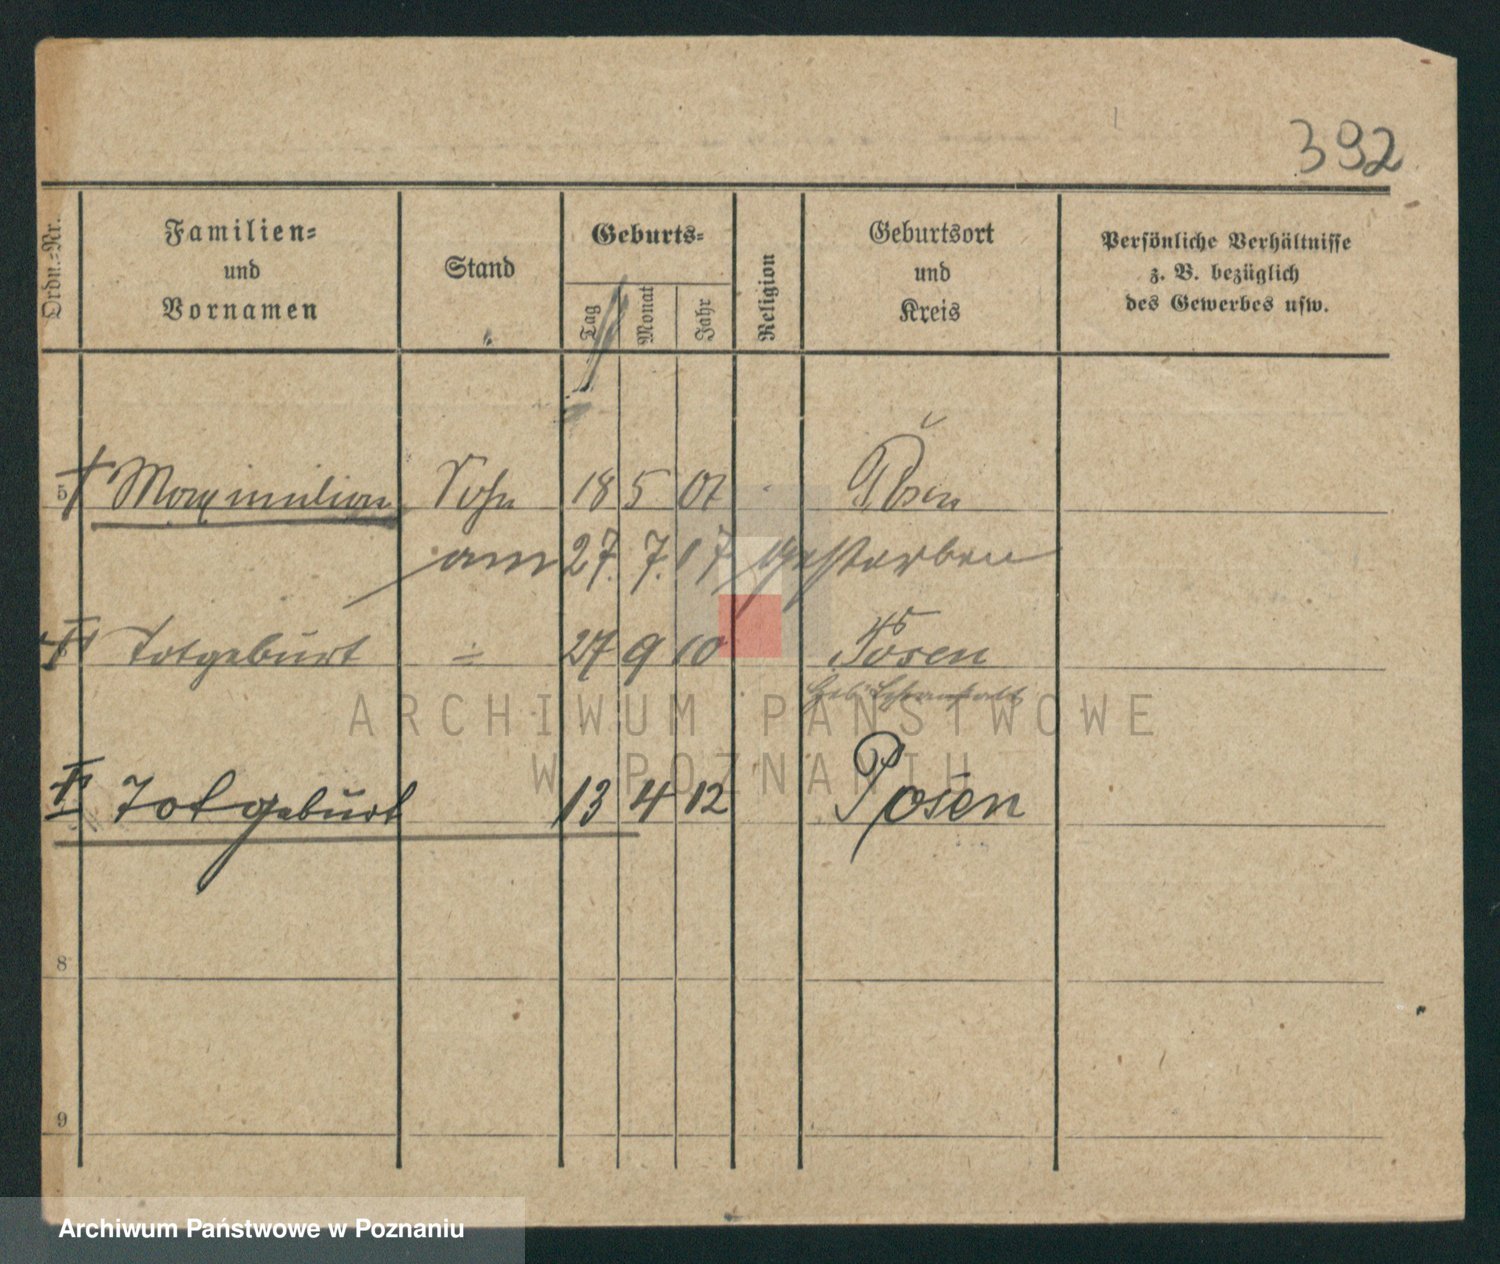 392
Ordn.-Nr.
Familien-
und
Vornamen
Stand
Geburts-
Tag
Monat
Jahr
Religion
Geburtsort
und
Kreis
Persönliche Verhältnisse
z. B. bezüglich
des Gewerbes usw.
5 † Maximilian Sohn 18 5 07 Posen
am 27. 7. 17 gestorben
† Totgeburt ÷ 27 9 10 Posen
† Totgeburt 13 4 12 Posen
8
9
ARCHIWUM PAŃSTWOWE
W POZNANIU
Archiwum Państwowe w Poznaniu